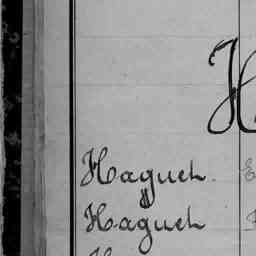 H
Haguet E
"
Haguet